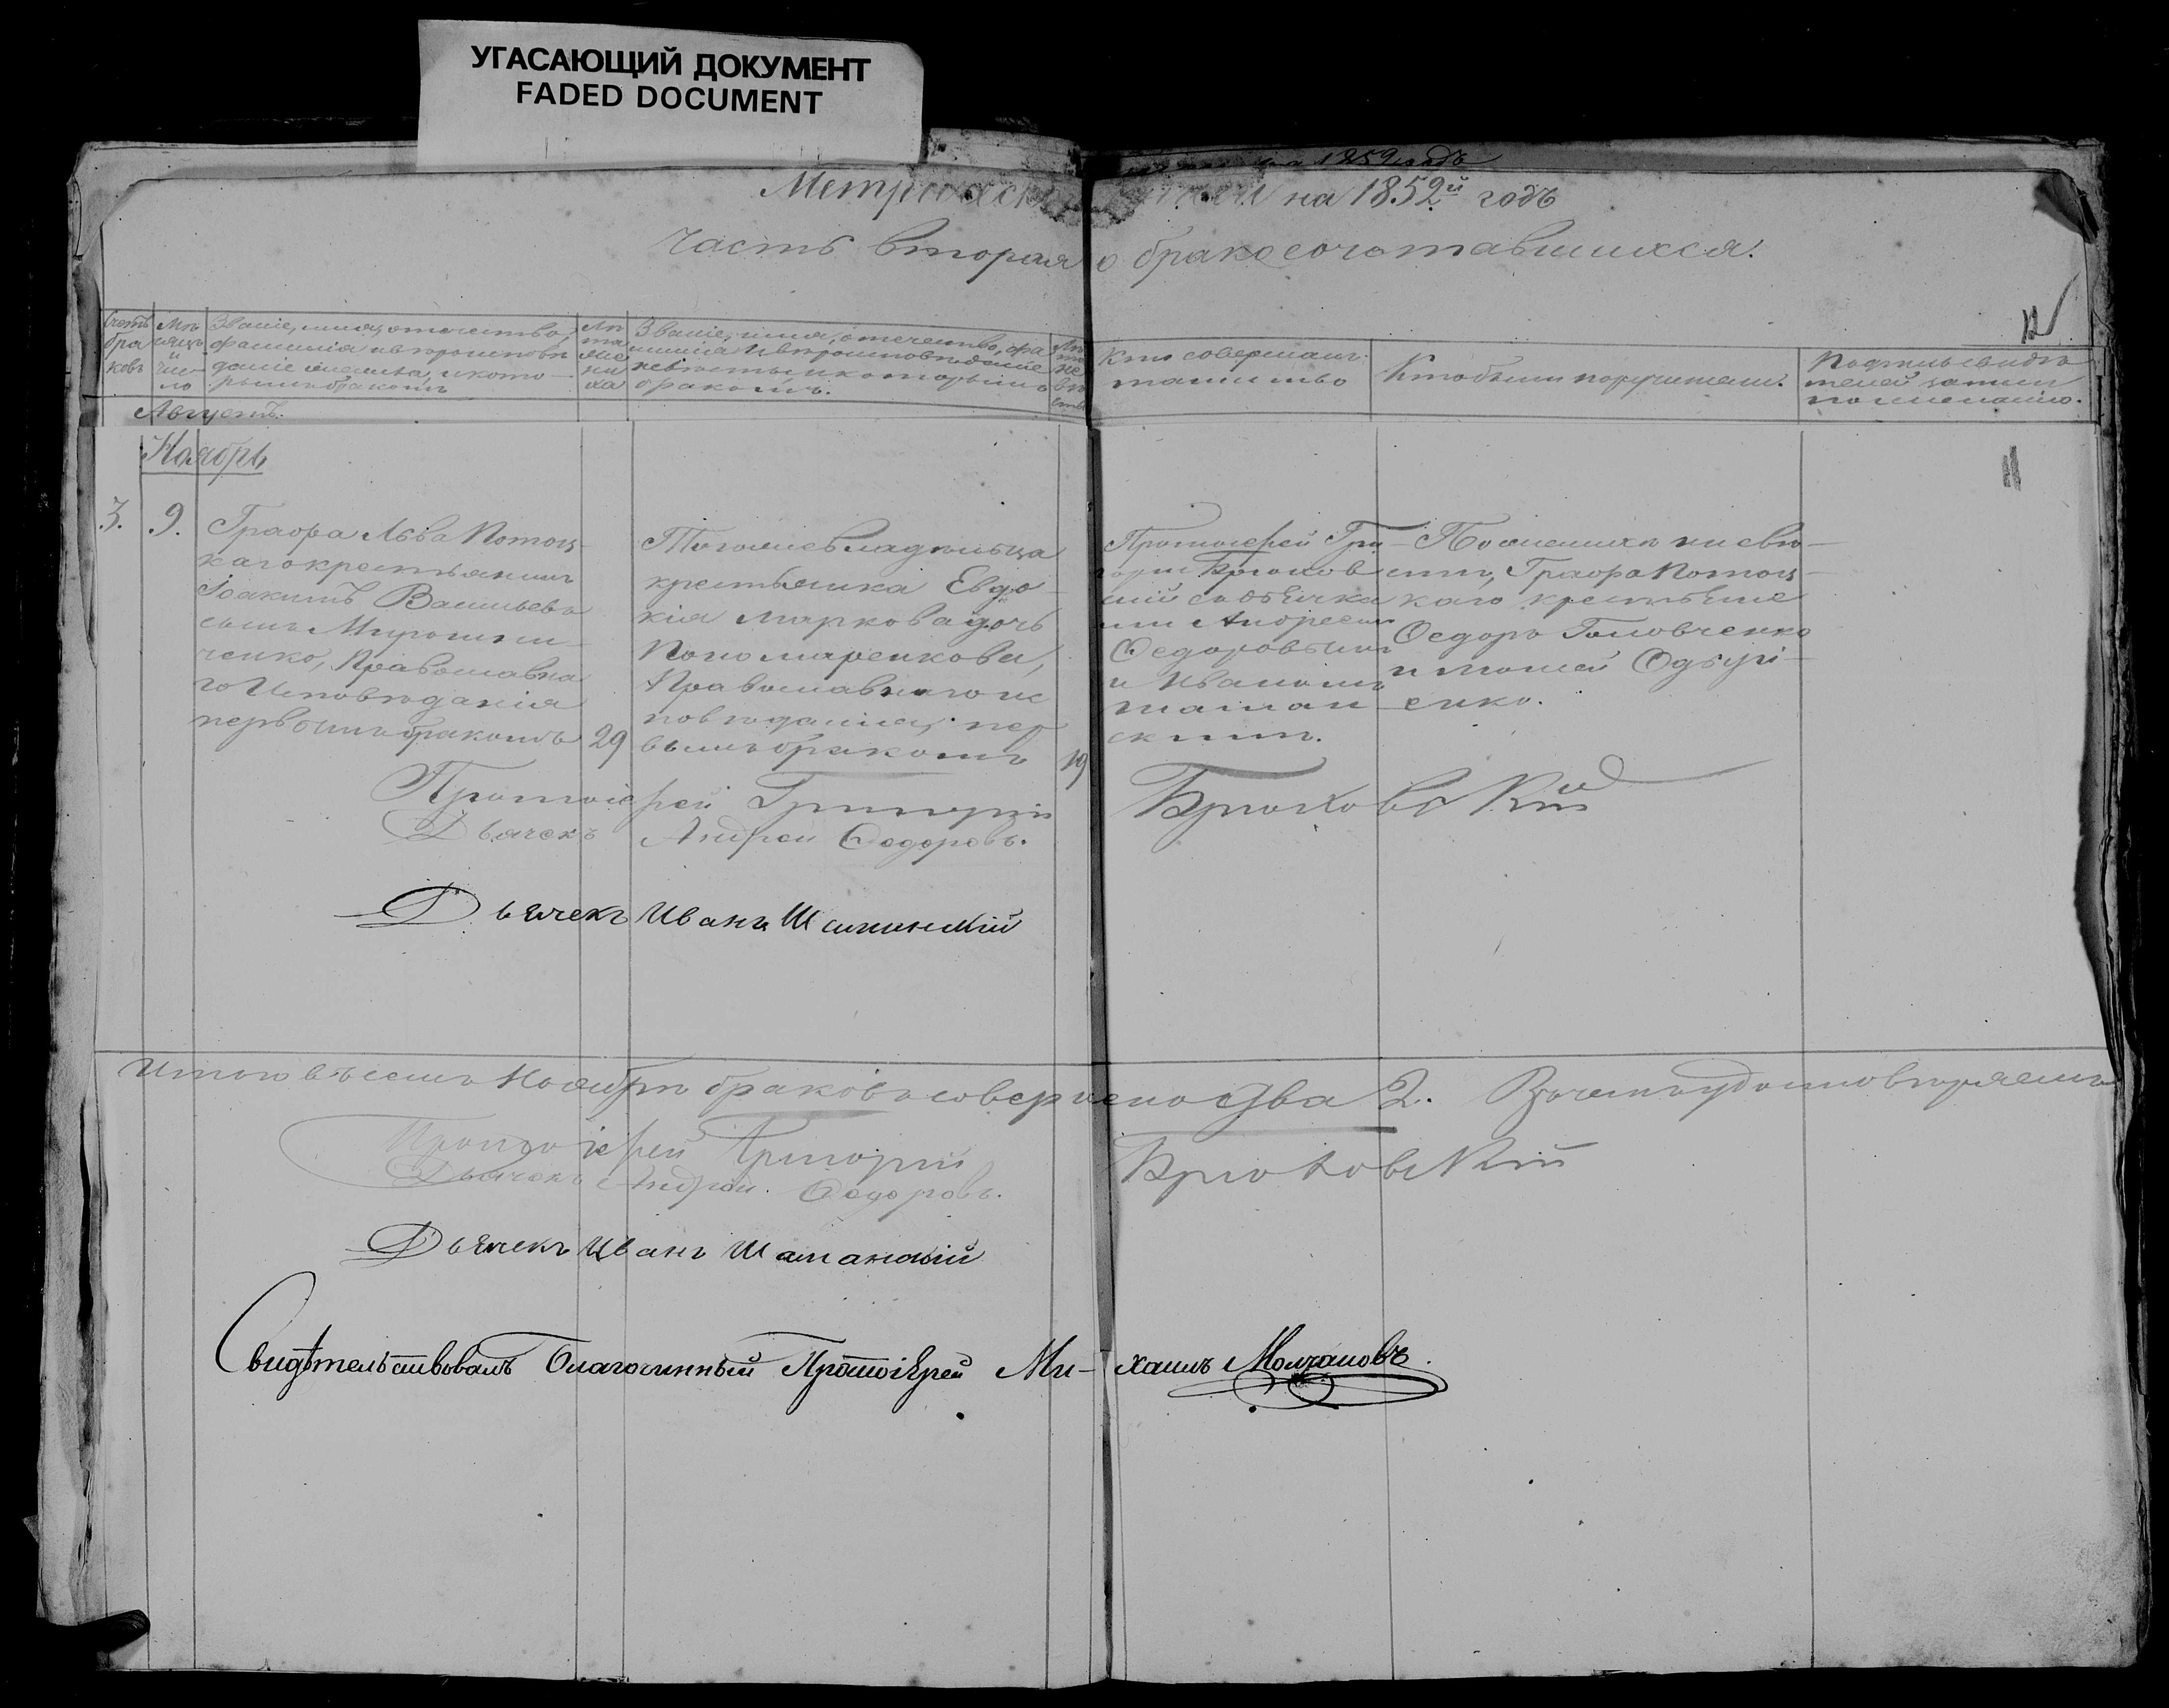 УГАСАЮЩИЙ ДОКУМЕНТ
FADED DOCUMENT
на 1852 годъ
на 1852й годъ
Часть вторая о бракосочетавшихся.
12
Счетъ браковъ
Мѣсяцъ и число
Званіе, имя, отечество,
фамилія и вѣроисповѣ
даніе жениха, и кото-
рымъ бракомъ
Лѣта жениха
Званіе, имя, отечество, фа
милія и вѣроисповѣданіе
невѣсты и которымъ
бракомъ.
Кто совершалъ
таинство
Кто были поручители.
по желанію.
Августъ.
Ноябрь
11
3.
9.
Графа Льва Потоц-
каго крестьянинъ
Іоакимъ Васильевъ
сынъ Мирошни-
ченко, Православна
го Исповѣданія
первымъ бракомъ
29
Тогоже владѣльца
крестьянка Евдо-
кія Маркова дочь
Пономаренкова,
Православнаго ис
повѣданія, пер
вымъ бракомъ
19
Протоіерей Гри-
горій Брюхов
скій съ дьячка
ми Андреемъ
Федоровымъ
и Иваномъ
Шаман
скимъ.
По женихѣ и невѣ-
стѣ, Графа Потоц-
каго крестьяне
Федоръ Головченко
енко.
Протоіерей Григорій Брюховскій
Дьячекъ Андрей Федоровъ.
Дьячекъ Иванъ Шаманскій
Итого въ семъ Ноябрѣ браковъ совершено два 2. В чемъ удостовѣряемъ
Протоіерей Григорій Брюховскій
Дьячекъ Андрей Федоровъ.
Дьячекъ Иванъ Шаманскій
Свидѣтельствовалъ Благочинный Протоіерей Ми-хаилъ Молчановъ.